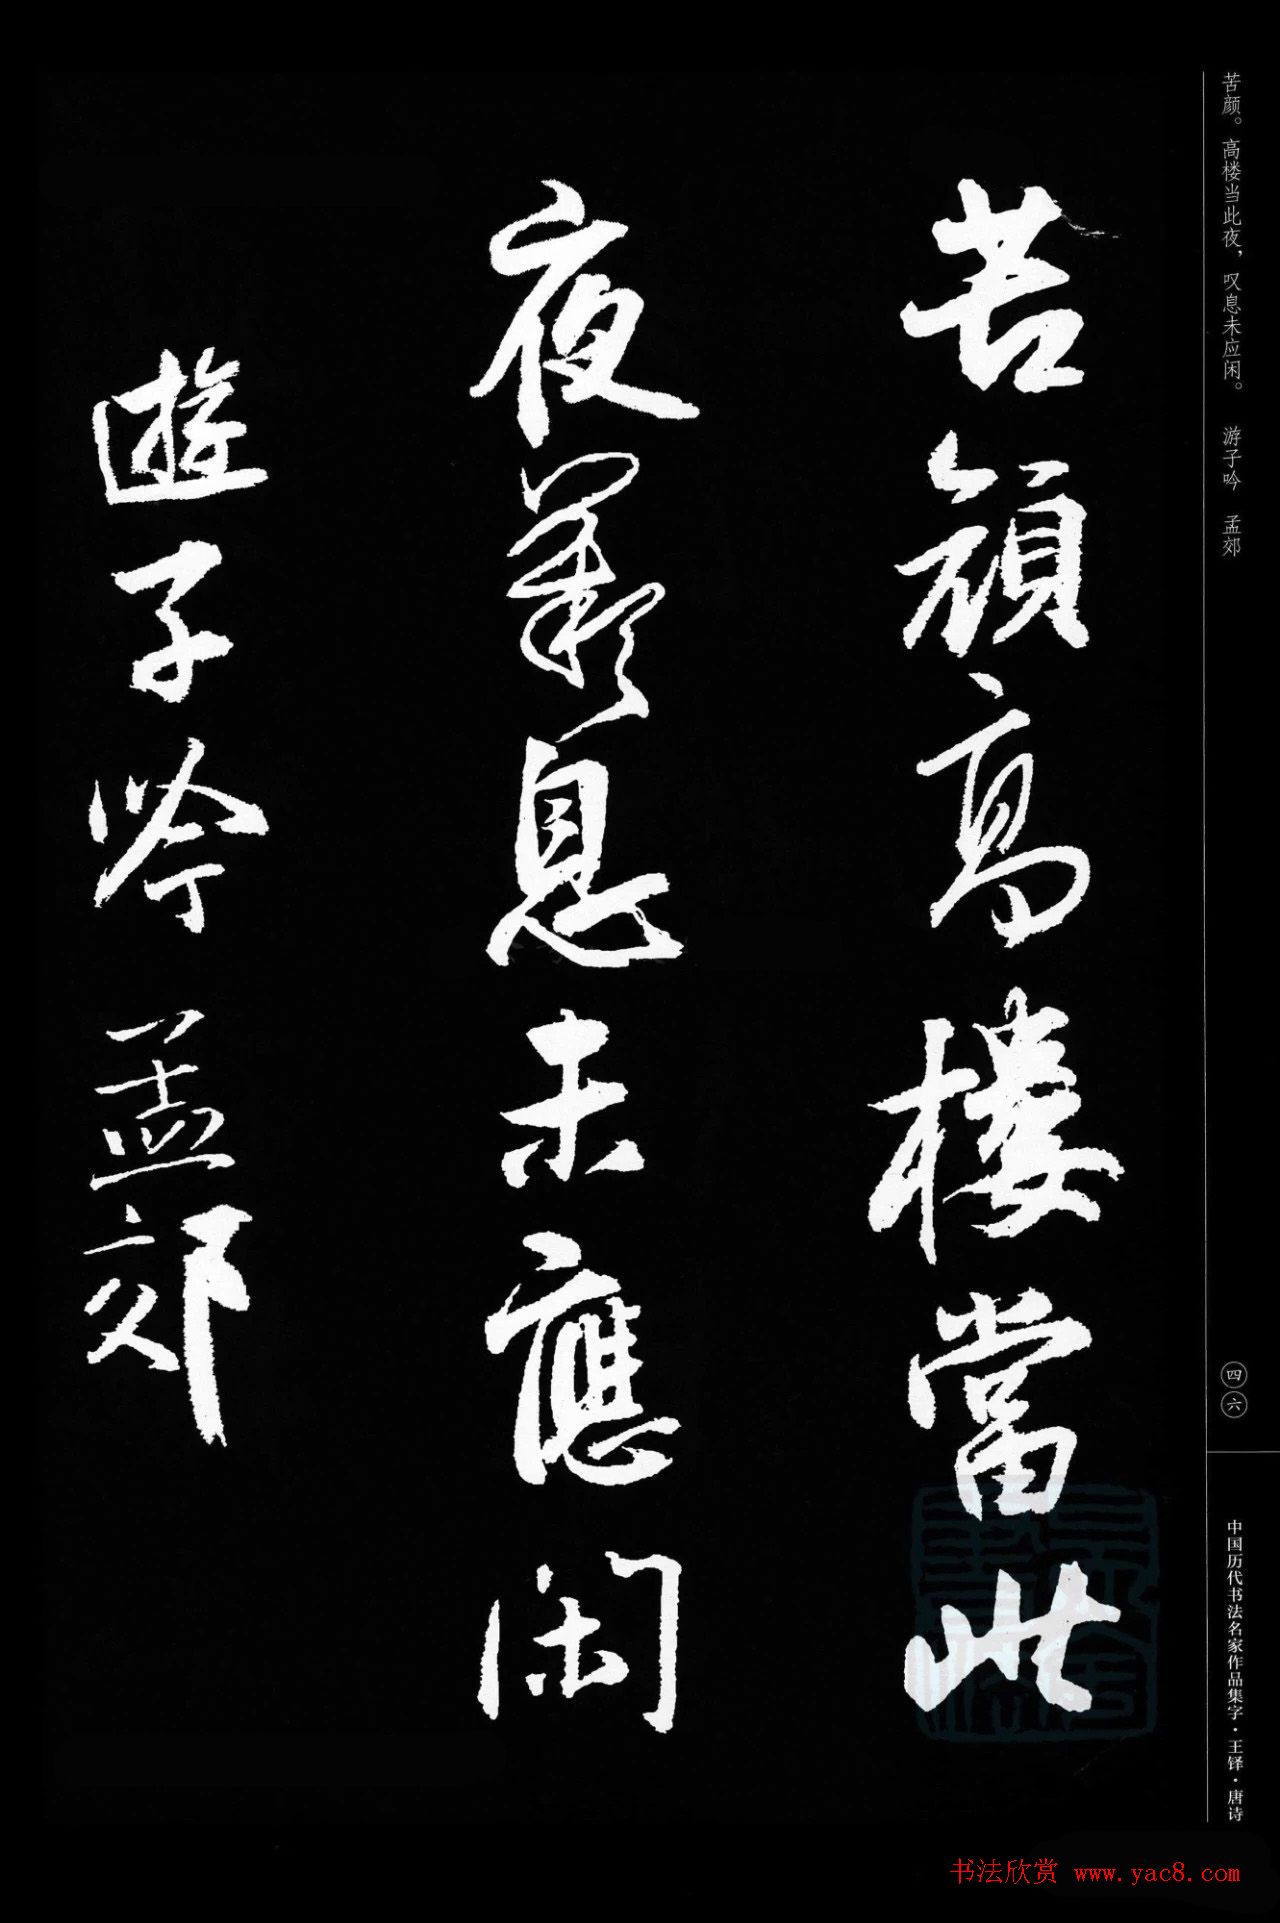 苦颜。高楼当此夜，叹息未应闲。 游子吟 孟郊
苦顏高樓當此
夜歎息未應閑
遊子吟 孟郊
四六
中国历代书法名家作品集字·王铎·唐诗
书法欣赏 www.yac8.com